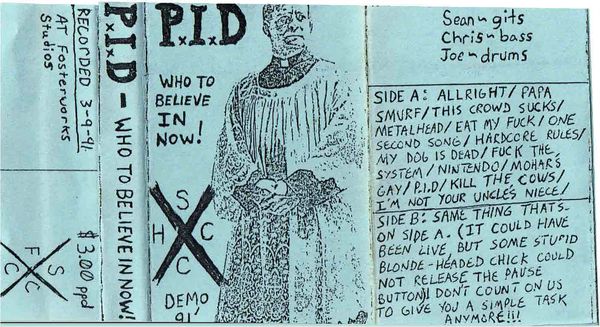 RECORDED 3-9-91
AT Fosterworks
Studios
$3.00 ppd
S
F C
C
P.I.D - WHO TO BELIEVE IN NOW!
P.I.D
X X X
WHO TO
BELIEVE
IN
NOW!
S
H C
C
DEMO
91'
Sean~gits
Chris~bass
Joe~drums
SIDE A: ALLRIGHT/ PAPA
SMURF/THIS CROWD SUCKS/
METALHEAD/ EAT MY FUCK/ ONE
SECOND SONG/ HARDCORE RULES/
MY DOG IS DEAD/ FUCK THE
SYSTEM/ NINTENDO/ MOHARS
GAY/ P.I.D/ KILL THE COWS/
I'M NOT YOUR UNCLES NIECE/
SIDE B: SAME THING THATS-
ON SIDE A. (IT COULD HAVE
BEEN LIVE, BUT SOME STUPID
BLONDE-HEADED CHICK COULD
NOT RELEASE THE PAUSE
BUTTON)! DON'T COUNT ON US
TO GIVE YOU A SIMPLE TASK
ANYMORE!!!